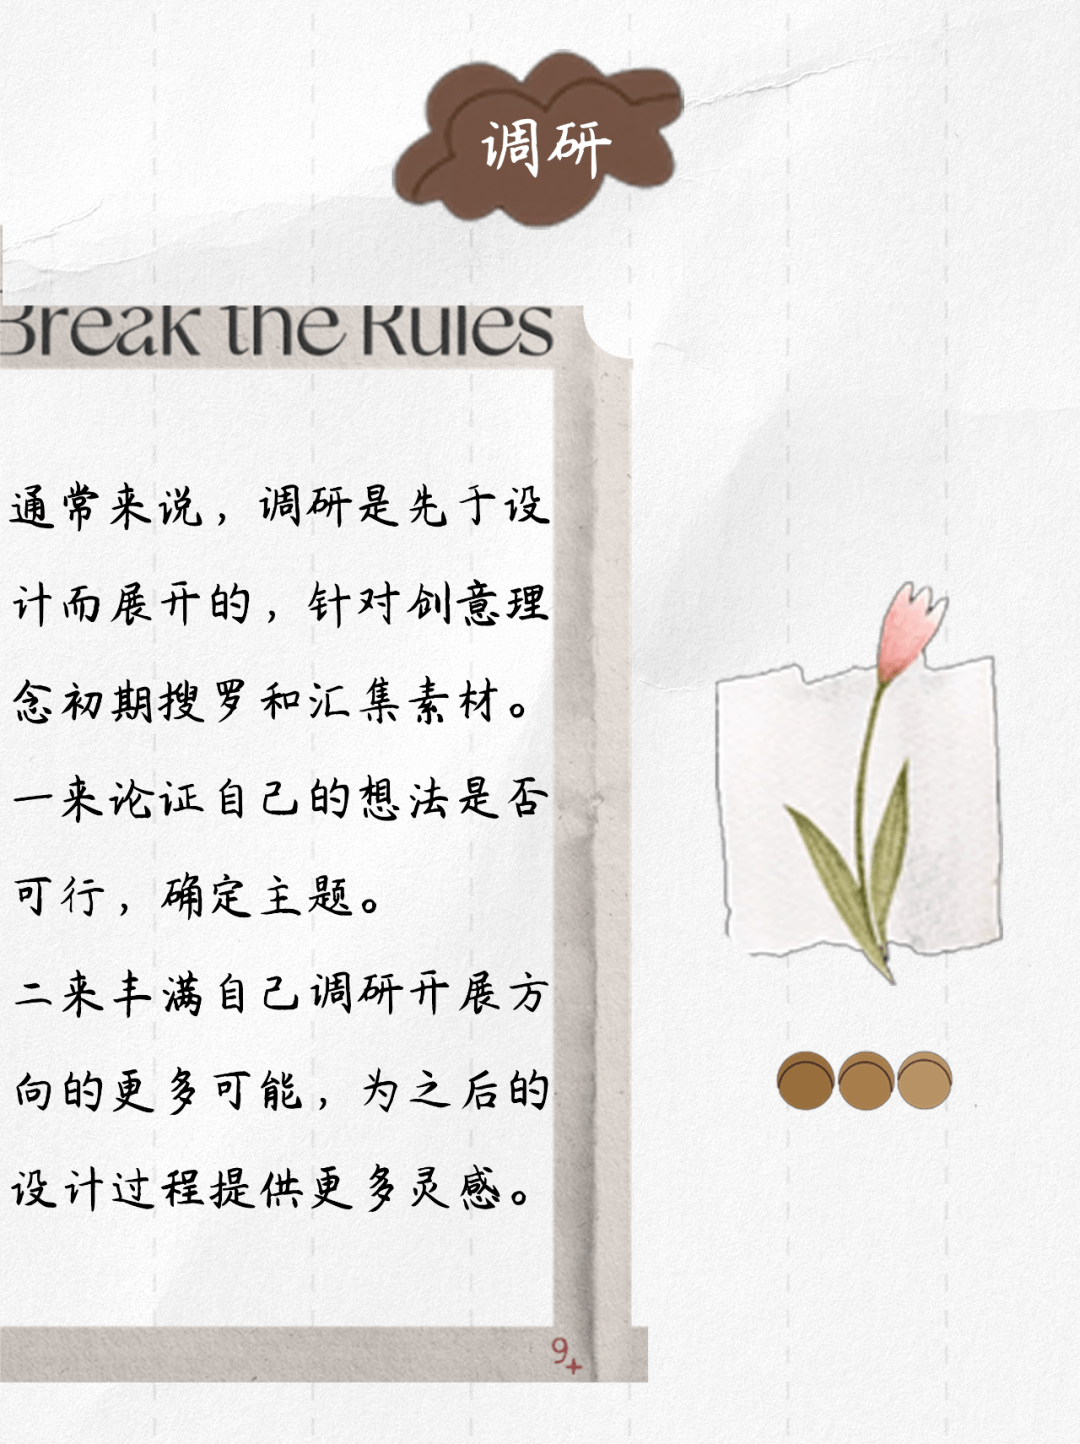 调研
Break the Rules
通常来说，调研是先于设
计而展开的，针对创意理
念初期搜罗和汇集素材。
一来论证自己的想法是否
可行，确定主题。
二来丰满自己调研开展方
向的更多可能，为之后的
设计过程提供更多灵感。
9+